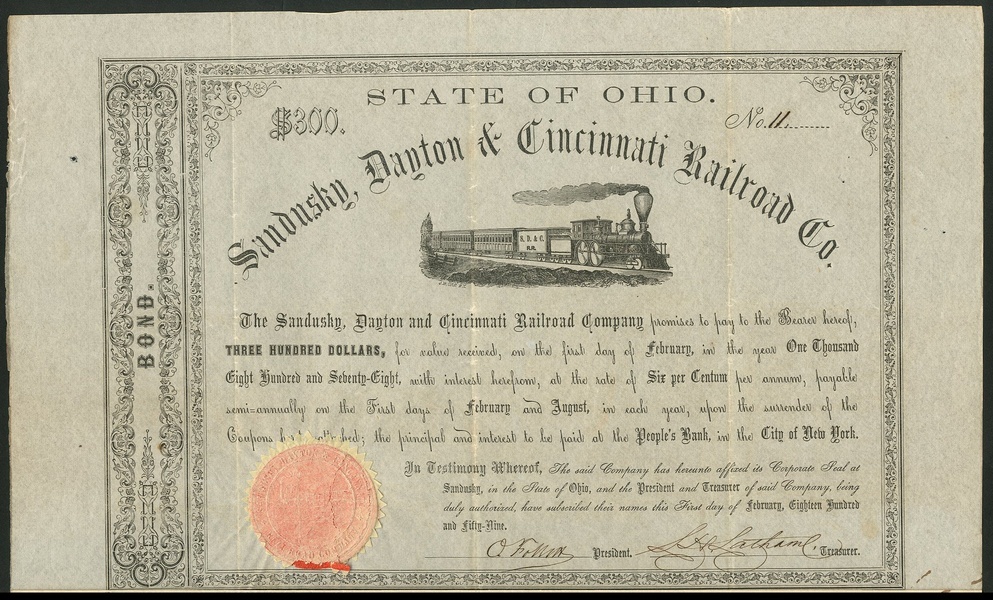 STATE OF OHIO.
$300.
No. 11.
Sandusky, Dayton & Cincinnati Railroad Co.
S. D. & C.
R.R.
BOND.
The Sandusky, Dayton and Cincinnati Railroad Company promises to pay to the Bearer hereof,
THREE HUNDRED DOLLARS, for value received, on the first day of February, in the year One Thousand
Eight Hundred and Seventy-Eight, with interest herefrom, at the rate of Six per Centum per annum, payable
semi-annually on the First days of February and August, in each year, upon the surrender of the
Coupons; the principal and interest to be paid at the People's Bank, in the City of New York.
In Testimony Whereof, The said Company has hereunto affixed its Corporate Seal at
Sandusky, in the State of Ohio, and the President and Treasurer of said Company, being
duly authorized, have subscribed their names this First day of February, Eighteen Hundred
and Fifty-Nine.
President.
Treasurer.